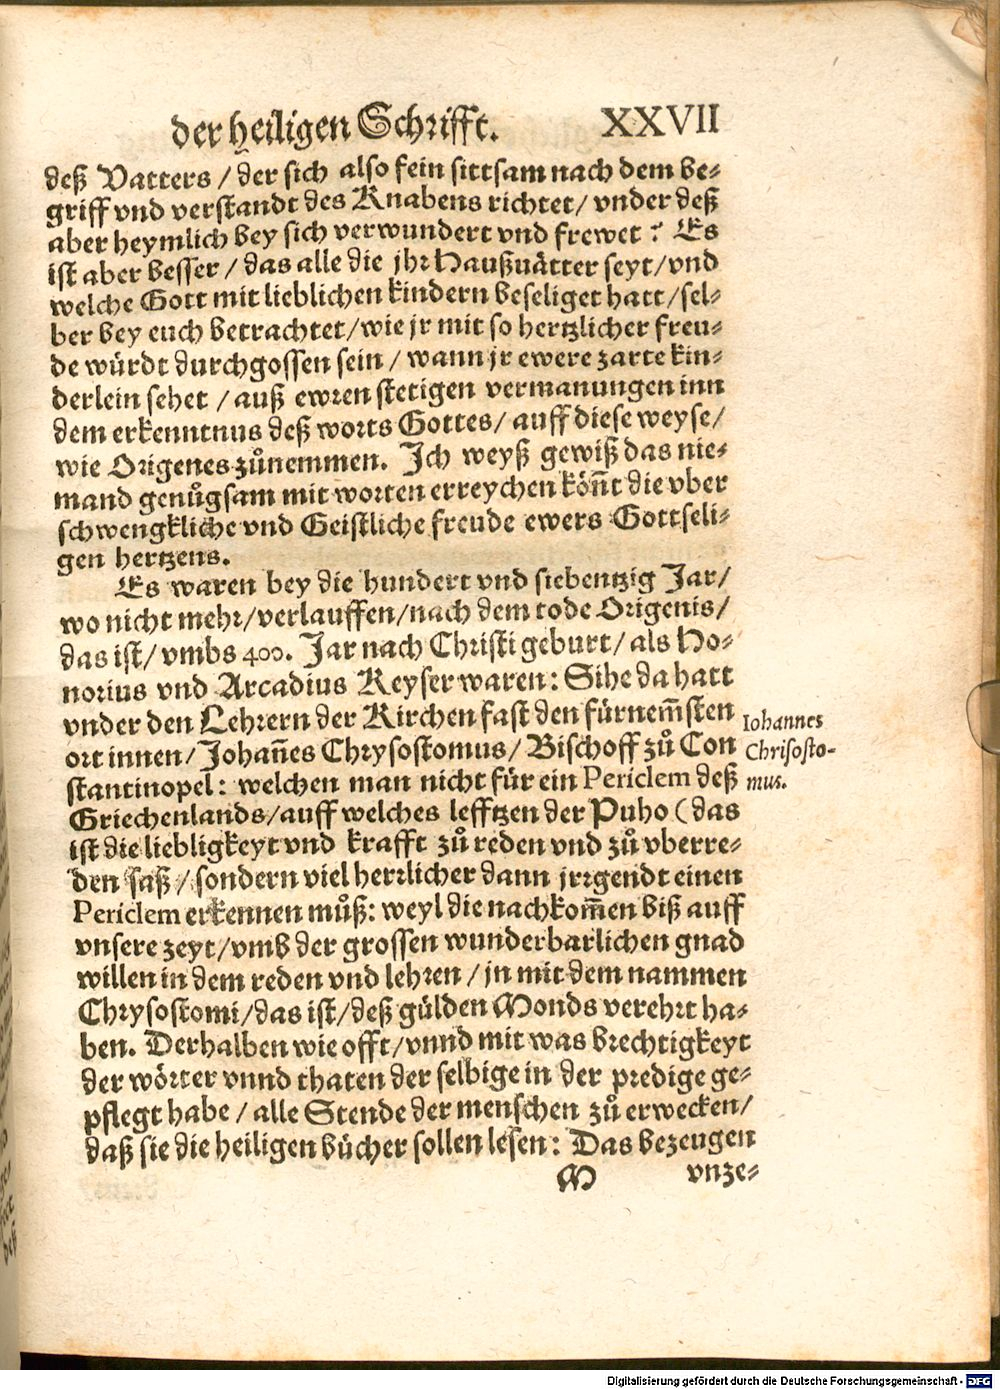 der heiligen Schrifft. XXVII
deß Vatters / der sich also fein sittsam nach dem be-
griff vnd verstandt des Knabens richtet / vnder deß
aber heymlich bey sich verwundert vnd frewet? Es
ist aber besser / das alle die jhr Haußuätter seyt / vnd
welche Gott mit lieblichen kindern beseliget hatt / sel-
ber bey euch betrachtet / wie jr mit so hertzlicher freu-
de würdt durchgossen sein / wann jr ewere zarte kin-
derlein sehet / auß ewren stetigen vermanungen inn
dem erkenntnus deß worts Gottes / auff diese weyse /
wie Origenes zůnemmen. Ich weyß gewiß das nie-
mand genůgsam mit worten erreychen kön̄t die vber
schwengkliche vnd Geistliche freude ewers Gottseli-
gen hertzens.
Es waren bey die hundert vnd siebentzig Jar /
wo nicht mehr / verlauffen / nach dem tode Origenis /
das ist / vmbs 400. Jar nach Christi geburt / als Ho-
norius vnd Arcadius Keyser waren: Sihe da hatt
vnder den Lehrern der Kirchen fast den fürnem̄sten
ort innen / Johan̄es Chrysostomus / Bischoff zů Con
stantinopel: welchen man nicht für ein Periclem deß
Griechenlands / auff welches lefftzen der Puho (das
ist die liebligkeyt vnd krafft zů reden vnd zů vberre-
den saß / sondern viel herrlicher dann jrrgendt einen
Periclem erkennen můß: weyl die nachkom̄en biß auff
vnsere zeyt / vmb der grossen wunderbarlichen gnad
willen in dem reden vnd lehren / jn mit dem nammen
Chrysostomi / das ist / deß gülden Monds verehrt ha-
ben. Derhalben wie offt / vnnd mit was brechtigkeyt
der wörter vnnd thaten der selbige in der predige ge-
pflegt habe / alle Stende der menschen zů erwecken /
daß sie die heiligen bücher sollen lesen: Das bezeugen
M vnze-
Iohannes
Chrisosto-
mus.
Digitalisierung gefördert durch die Deutsche Forschungsgemeinschaft - DFG